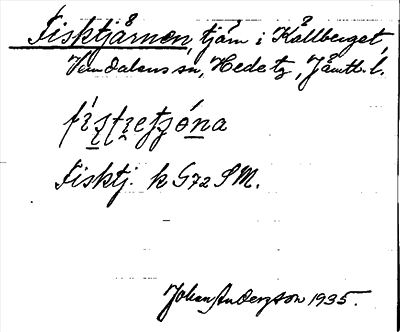 Fisktjärnen, tjärn i Kållberget,
Vemdalens sn, Hede tg, Jämtl. l.
Fisktj. k G72 SM.
Johan Anderzson 1935.